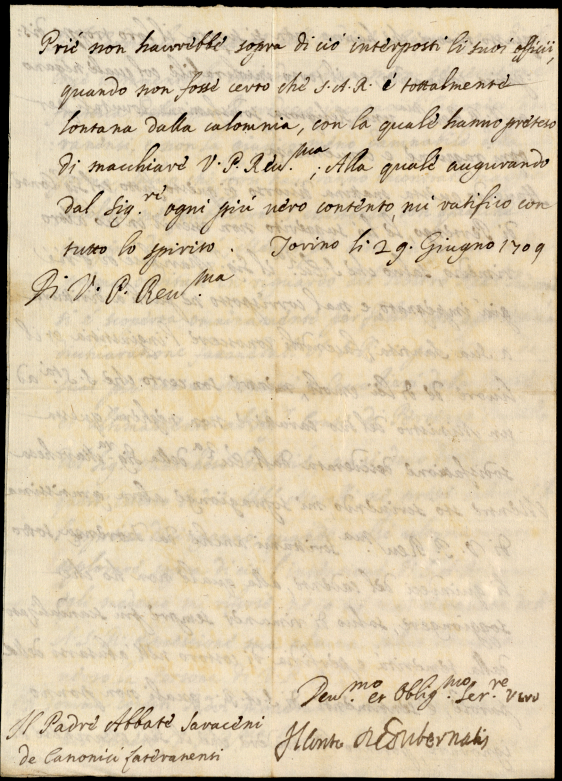 Prié non havrebbe sopra di ció interposti li suoi officii,
quando non fosse certo che S.A.R. é totalmente
lontana dalla calomnia, con la quale hanno preteso
di macchiare V. P. Reu.ma; Alla quale augurando
dal Sig.re ogni piú vero contento mi ratifico con
tutto lo spirito. Torino li 29. Giugno 1709
Di V. P. Reu.ma
Deu.mo et Oblig.mo Ser.re vero
Il Conte De Gubernatis
Il Padre Abbate Saraceni
de Canonici Lateranenti